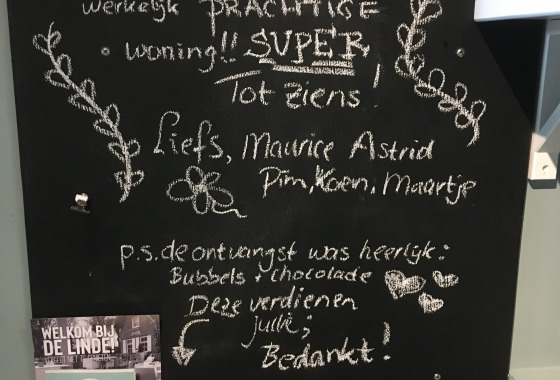 werkelijk PRACHTIGE
woning!! SUPER
Tot ziens!
Liefs, Maurice Astrid
Pim, Koen, Maartje
p.s. de ontvangst was heerlijk:
Bubbels + chocolade
Deze verdienen
jullie;
Bedankt!
WELKOM BIJ
DE LINDE!